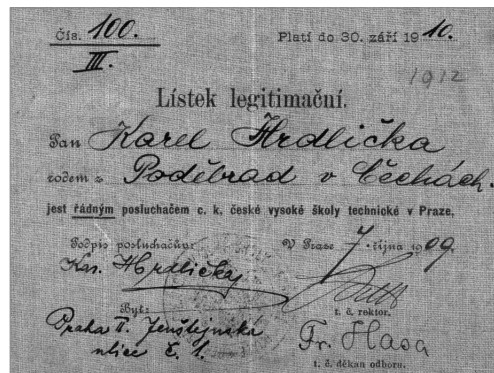 Čís. 100.
III.
Platí do 30. září 1910.
1912
Lístek legitimační.
Pan Karel Hrdlička
rodem z Poděbrad v Čechách.
jest řádným posluchačem c. k. české vysoké školy technické v Praze.
Podpis posluchačův:
V Praze 7. října 1909.
Kar. Hrdlička
t. č. rektor.
Byt:
Praha II. Jenštejnská
ulice č. 1.
Fr. Hasa
t. č. děkan odboru.